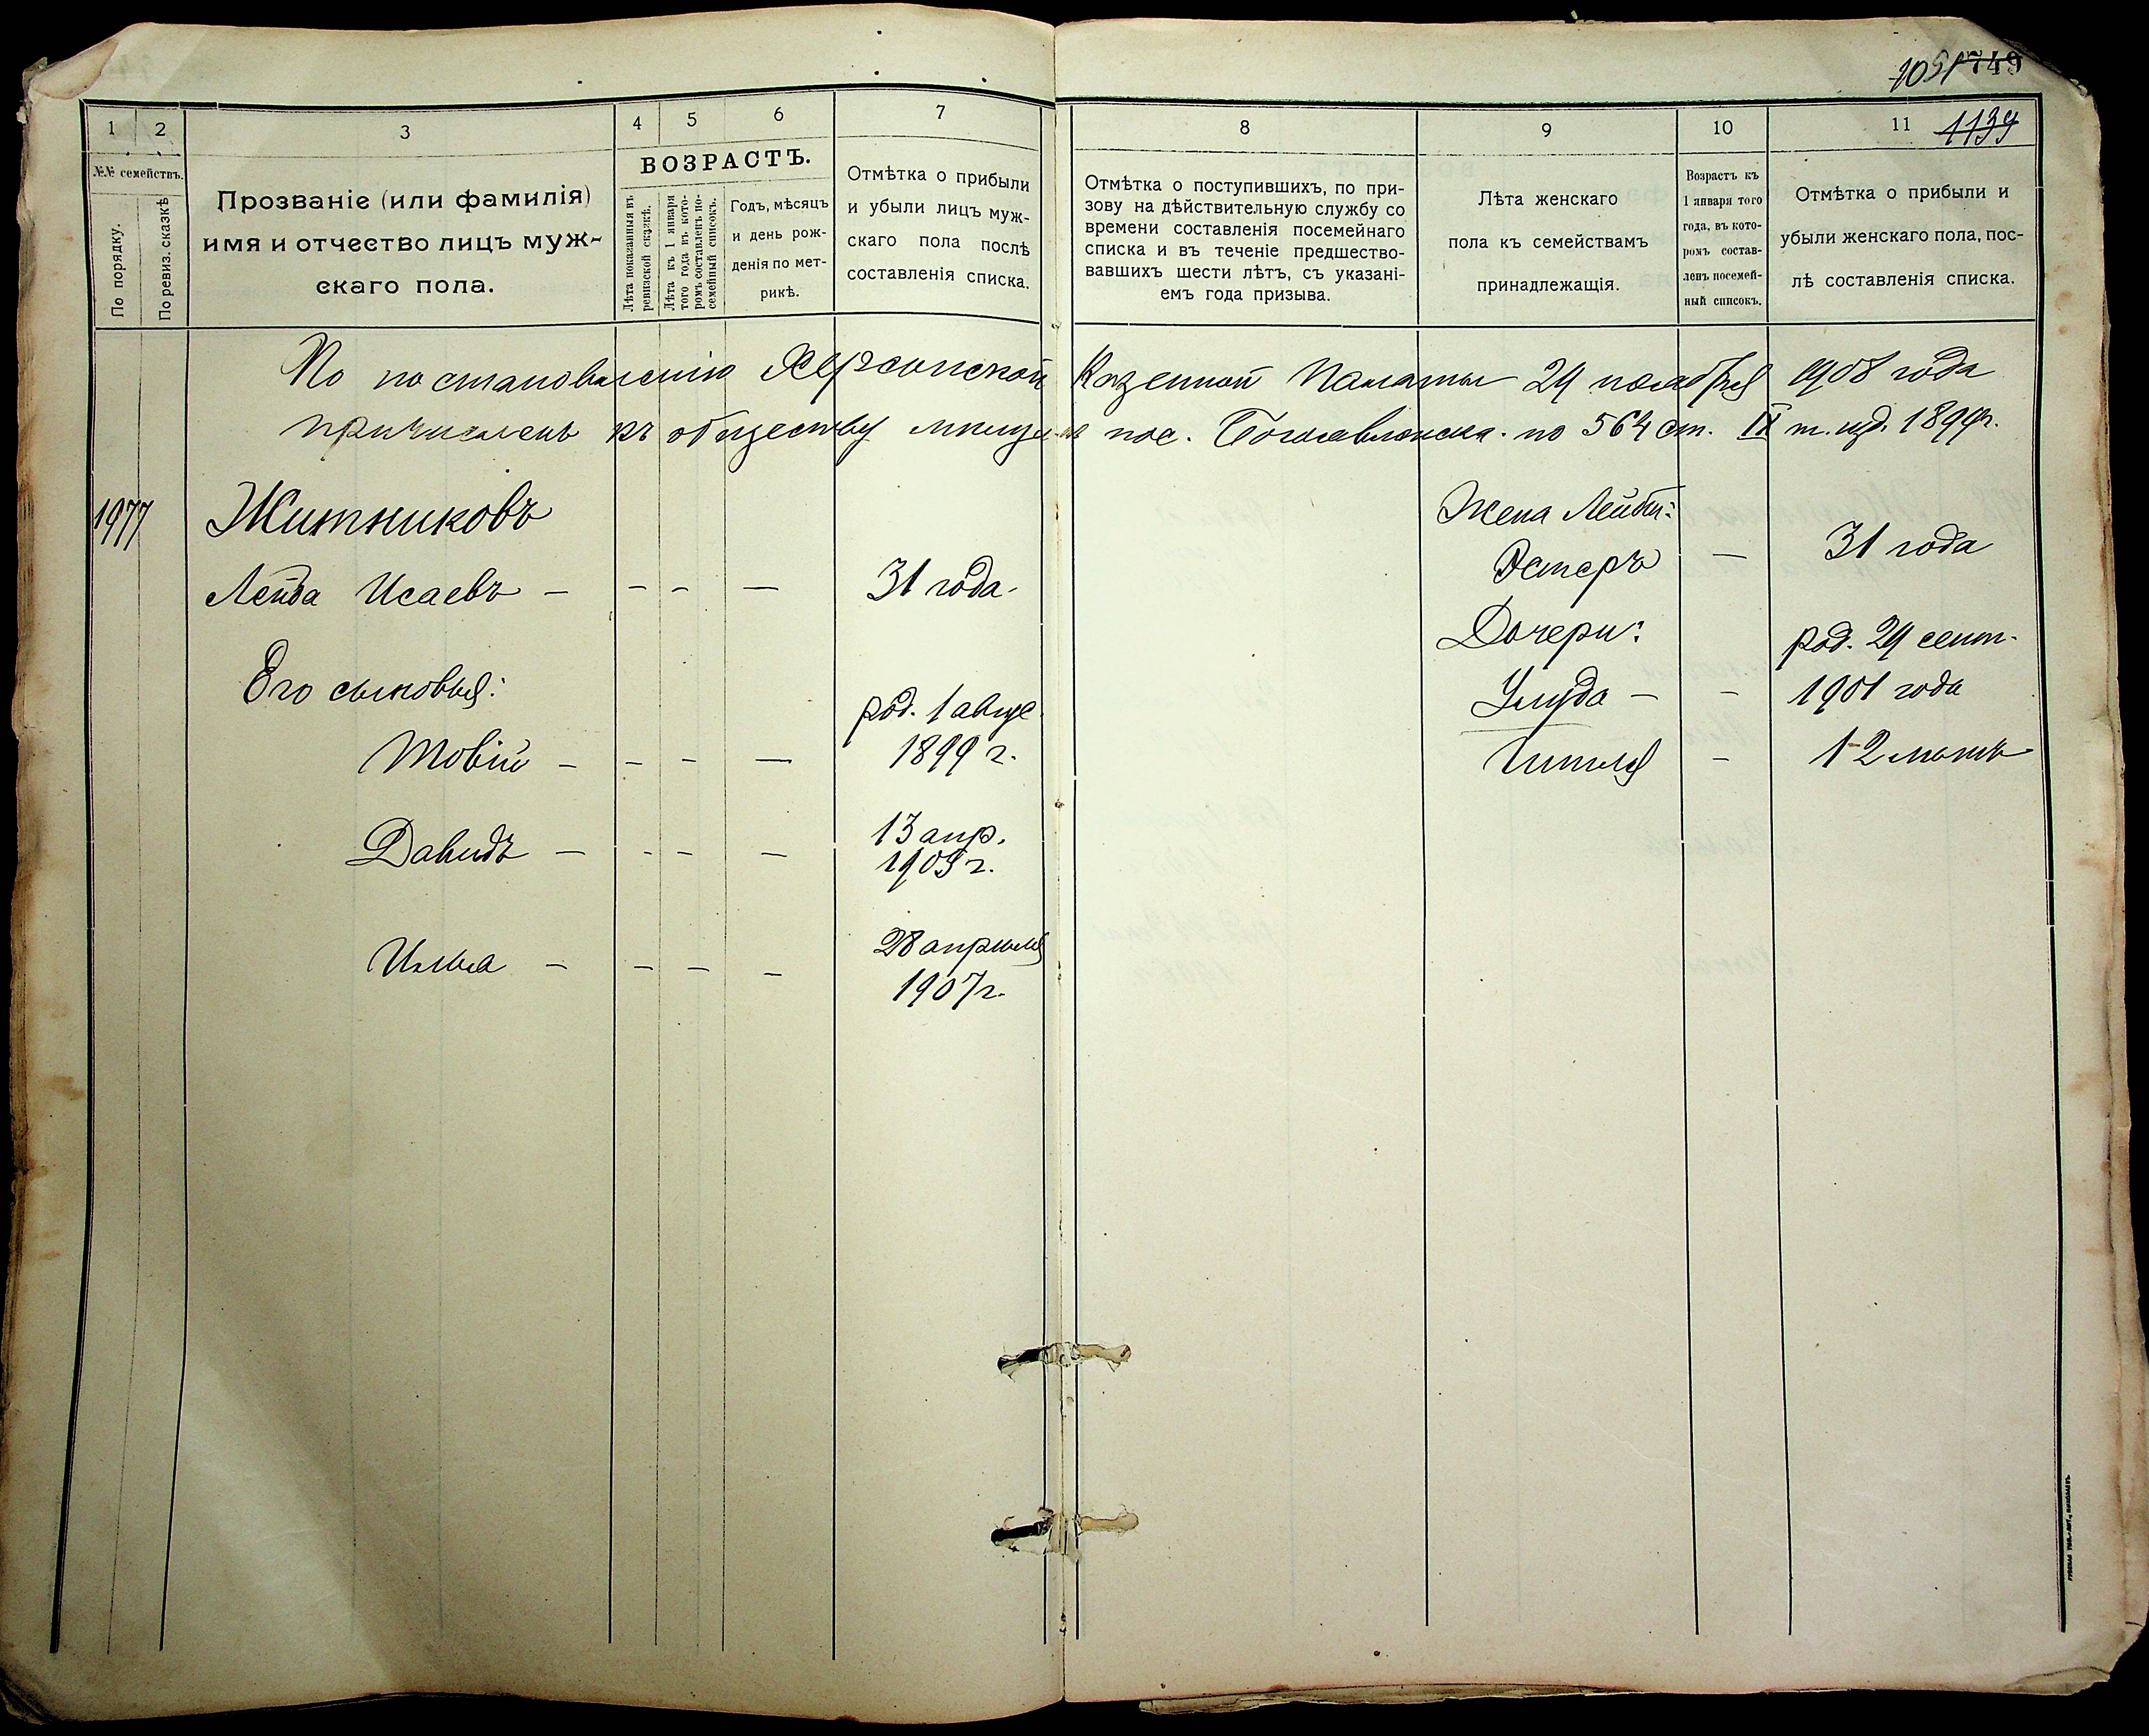 1051 749
1139
1
2
3
4
5
6
7
8
9
10
11
№№ семействъ.
По порядку.
По ревиз. сказкѣ
Прозваніе (или фамилія)
имя и отчество лицъ муж-
скаго пола.
ВОЗРАСТЪ.
Лѣта показанныя въ
ревизской сказкѣ.
Лѣта къ 1 января
того года въ кото-
ромъ составленъ по-
семейный списокъ.
Годъ, мѣсяцъ
и день рож-
денія по мет-
рикѣ.
Отмѣтка о прибыли
и убыли лицъ муж-
скаго пола послѣ
составленія списка.
Отмѣтка о поступившихъ, по при-
зову на дѣйствительную службу со
времени составленія посемейнаго
списка и въ теченіе предшество-
вавшихъ шести лѣтъ, съ указані-
емъ года призыва.
Лѣта женскаго
пола къ семействамъ
принадлежащія.
Возрастъ къ
1 января того
года, въ кото-
ромъ состав-
ленъ посемей-
ный списокъ.
Отмѣтка о прибыли и
убыли женскаго пола, пос-
лѣ составленія списка.
По постановленію Херсонской Казенной Палаты 29 ноября 1908 года
причисленъ къ обществу мѣщанъ пос. Богоявленска по 564 ст. IX т. изд. 1899г.
1977 Житниковъ
Лейба Исаевъ — - - — 31 года.
Его сыновья:
Товій — - - — род. 1 авгус. 1899 г.
Давидъ — - - — 13 апр. 1905 г.
Илья — - - — 28 апрѣля 1907г.
Жена Лейбы:
Эстеръ — 31 года
Дочери:
род. 29 сент.
— - 1901 года
- 12 лѣтъ